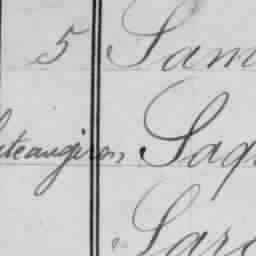 5 Sam
teaugiron, Saq
Sarc